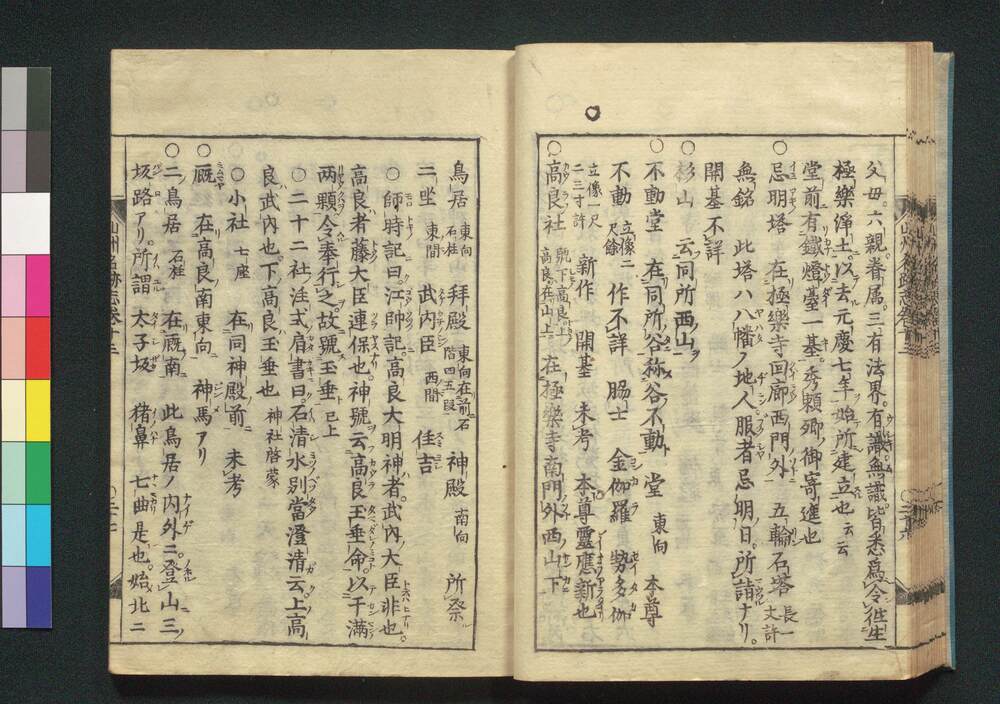 父母六親眷属三有法界有識無識皆悉爲令往生
極樂淨土以去元慶七年始所建立也云云
堂前有鐵燈臺一基秀頼卿御寄進也
○忌明塔 在極樂寺回廊西門外 五輪石塔 長一丈許
無銘 此塔ハ八幡ノ地人服者忌明日所詣ナリ
開基不詳
○杉山 云同所西山
○不動堂 在同所谷称谷不動 堂 東向 本尊
不動 立像二尺餘 作不詳 脇士 金伽羅 勢多伽
立像一尺二三寸許 新作 開基 未考 本尊靈應新也
○高良社 號下高良上高良在山上 在極樂寺南門外西山下
鳥居 東向石柱 拜殿 東向在前石階四五段 神殿 南向 所祭
二坐 東間 武内臣 西間 住吉
○師時記曰江帥記高良大明神者武内大臣非也
高良者藤大臣連保也神號云高良玉垂命以干満
两顆令奉行之故號玉垂 已上
○二十二社注式肩書曰石清水別當澄清云上高
良武内也下高良玉垂也 神社啓蒙
○小社 七座 在同神殿前 未考
○厩 在高良南東向 神馬アリ
○二鳥居 石柱 在厩南 此鳥居ノ内外ニ登山三
坂路アリ所謂 太子坂 猪鼻 七曲是也始北ニ